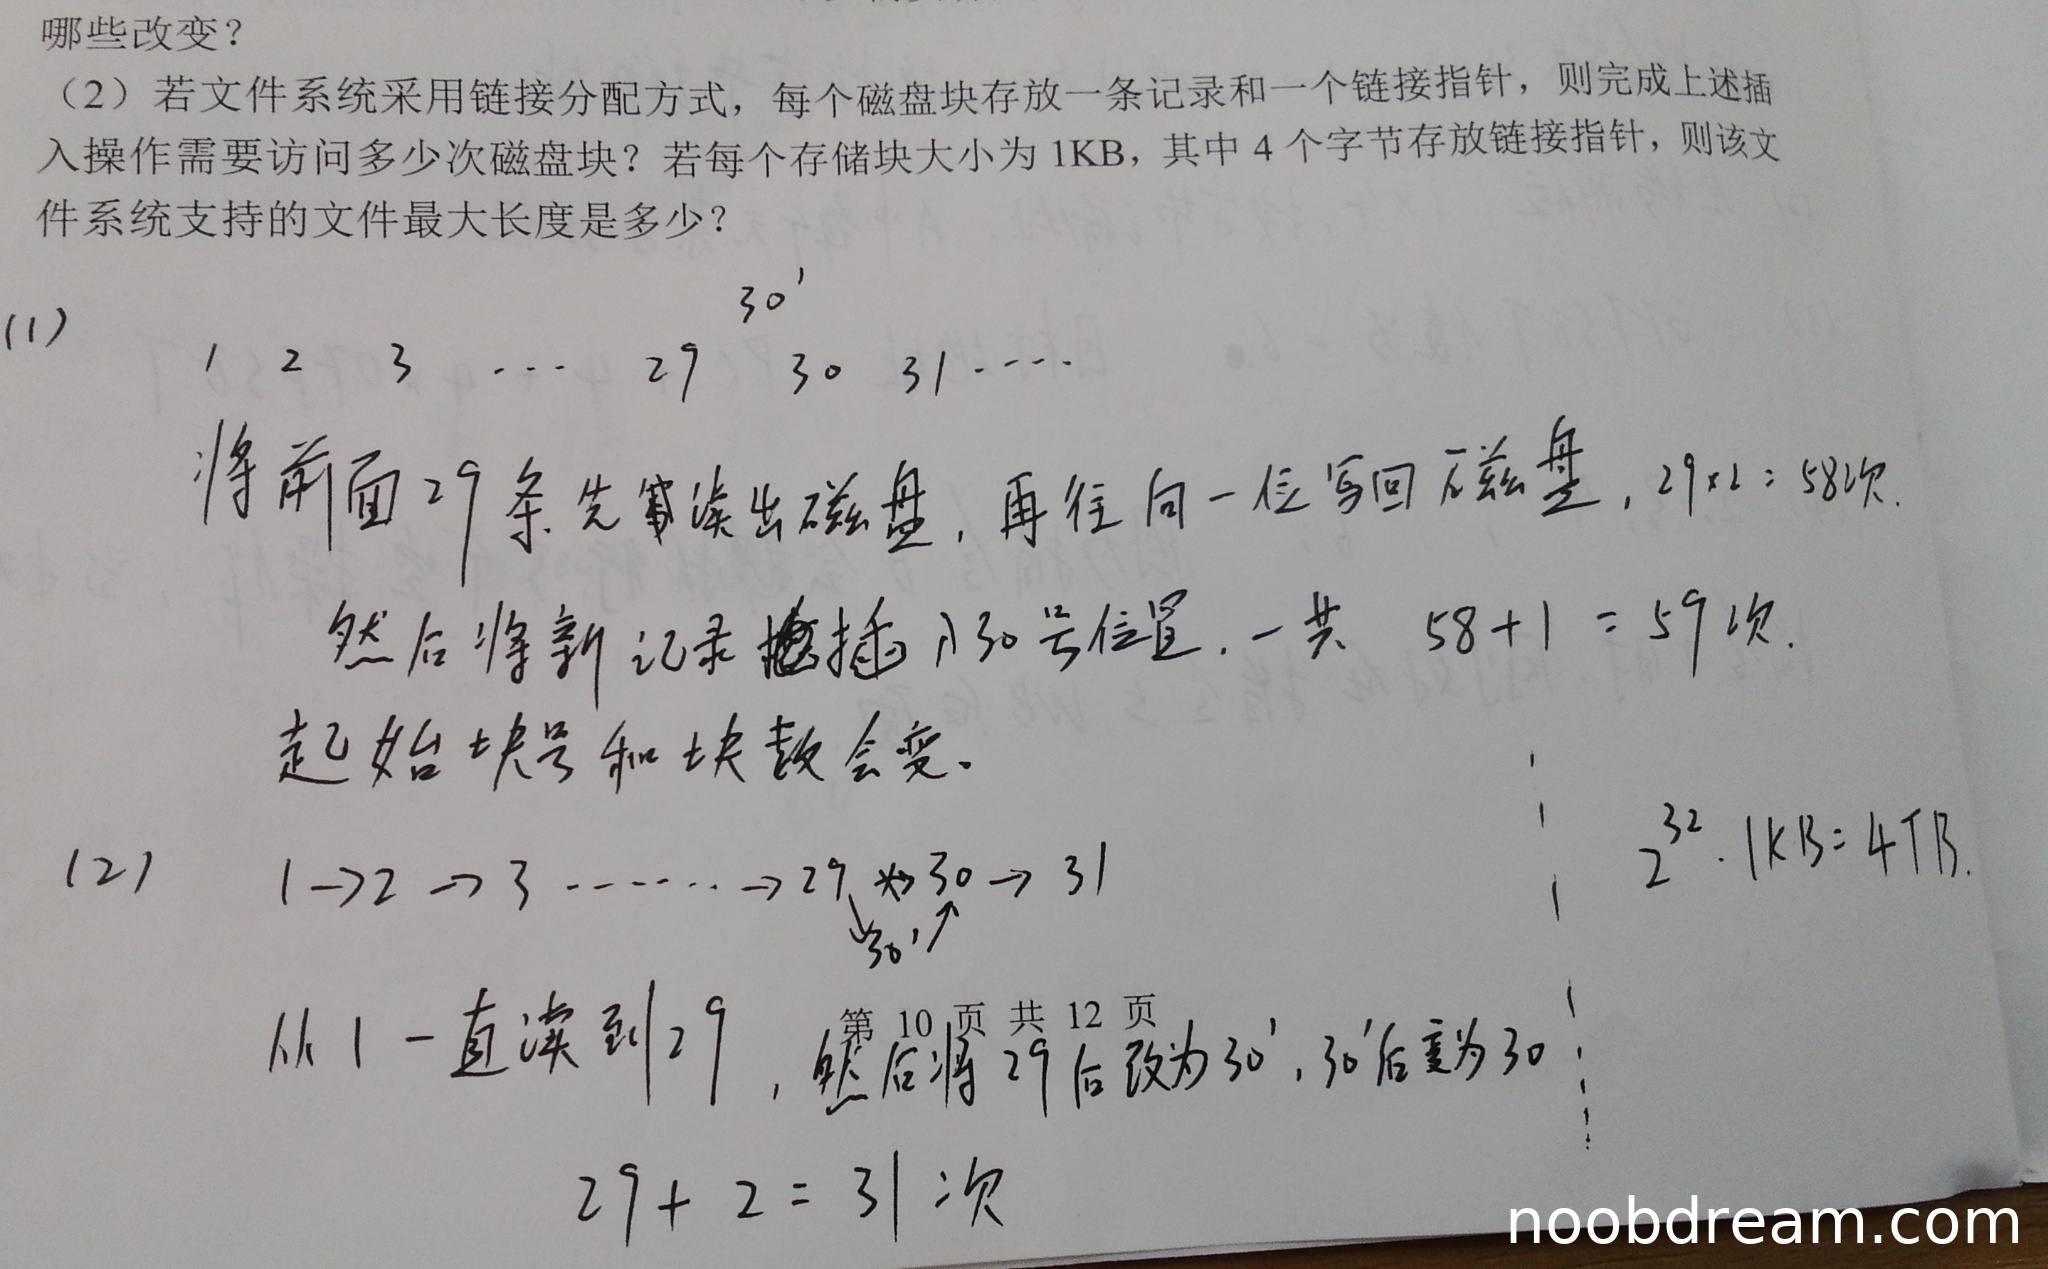 哪些改变？
（2）若文件系统采用链接分配方式，每个磁盘块存放一条记录和一个链接指针，则完成上述插
入操作需要访问多少次磁盘块？若每个存储块大小为 1KB，其中 4 个字节存放链接指针，则该文
件系统支持的文件最大长度是多少？
30'
(1)
1 2 3 ... 29 30 31 ....
将前面29条先读出磁盘，再往向一位写回磁盘，29×2=58次.
然后将新记录插入30号位置.一共 58+1=59次.
起始块号和块数会变。
2^32 · 1KB=4TB.
(2) 1→2→3 ......→29 → 30→31
30'
从1一直读到29，然后将29后改为30'，30'后变为30
第 10 页 共 12 页
29+2=31次
noobdream.com